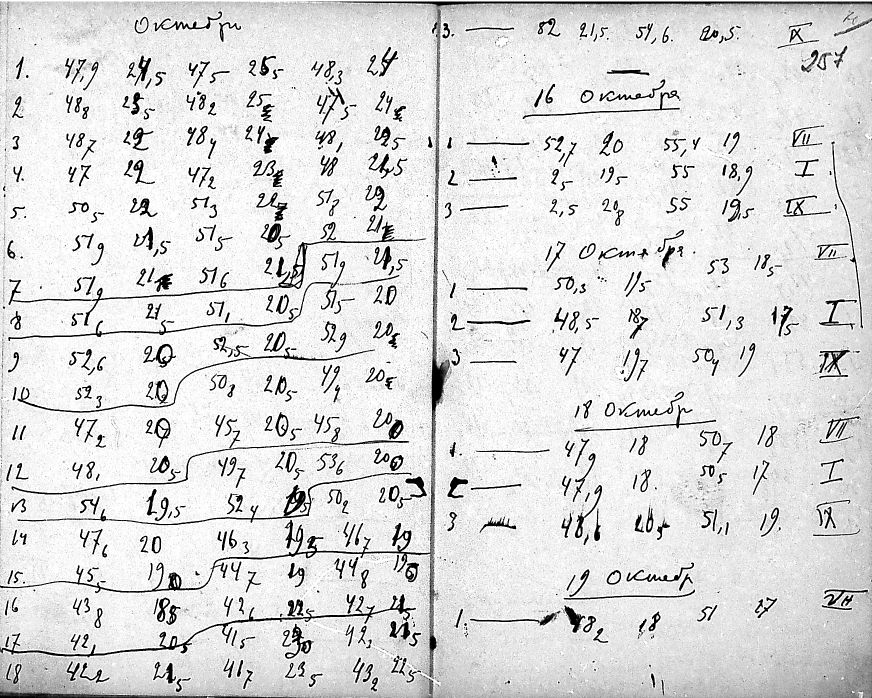 Октебри
1. 47,9 24,5 47 5 25 5 48,3 24
2 48 8 25 5 48 2 25 47 5 24
3 48 7 22 48 4 24 48, 22 5
4. 47 22 47 2 23 48 21,5
5. 50 5 22 51 3 22 51 8 22
6. 51 9 21,5 51 5 20 5 52 21
7 51 9 21 51 6 21,5 51 9 21,5
8 51 6 21 5 51, 20 5 51 5 20
9 52,6 20 52,5 20 5 52 9 20
10 52 3 20 50 8 20 5 49 4 20
11 47 2 20 45 7 20 5 45 8 20 0
12 48, 20 5 49 7 20 5 53 6 20 0
13 54 6 19,5 52 4 19 5 50 2 20 5
14 47 6 20 46 3 19 5 46 7 19
15. 45 5 19 0 44 7 19 44 8 19
16 43 8 18 5 42 6 22 5 42 7 21
17 42, 20 5 41 5 42 3 21 5
18 42 2 21 5 41 7 23 5 43 2 22 5
3. 82 21,5. 54,6. 20,5. IX
257
16 Октебря
1 52,7 20 55,4 19 VII
2 2 5 19 5 55 18,9 I
3 2,5 20 8 55 19,5 IX
17 Октебря VII
1 50,3 19 5 53 18 5
2 48,5 18 7 51,3 17 5 I
3 47 19 7 50 4 19 IX
18 Октебр
1. 47 9 18 50 7 18 VII
2 47,9 18. 50 5 17 I
3 48,6 20 5 51,1 19. IX
19 Октебр
1. 48 2 18 51 17 VII